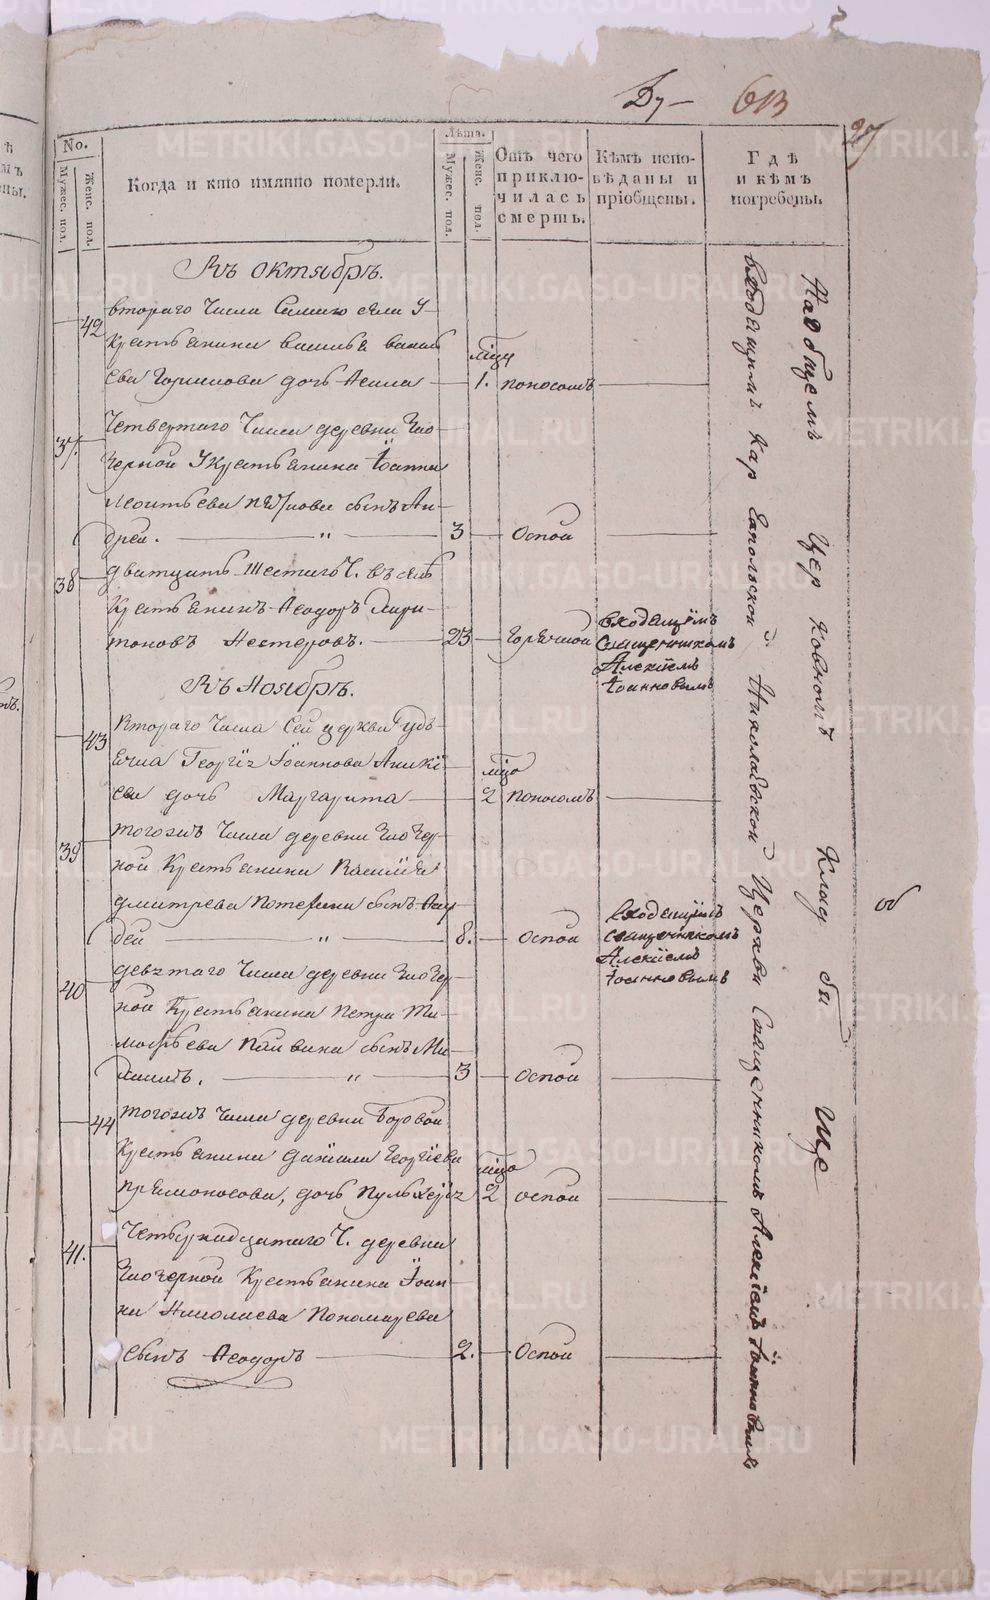 613
27
No.
Мужес. пол.
Женс. пол.
Когда и кто имянно померли.
Лѣта.
Мужес. пол.
Женс. пол.
Отъ чего приклю-
чилась
смерть.
Кѣмъ испо-
вѣданы и
пріобщены.
Гдѣ
и кѣмъ
погребены.
Въ октябрѣ.
42
втораго числа самаго села у
крестьянина василья васил
ева дочь
1.
поносомъ
37.
Четвертаго числа деревни
черной у крестьянина Іоанна
леонтьева сынъ Ан
дрей. 3 оспой
38
дватцать шестаго ч. въ селѣ
крестьянинъ Ѳеодоръ Хари
тоновъ Нестеровъ. 23 горячкой
входящимъ
священникомъ
Алексіемъ
Іоанновымъ
Въ Ноябрѣ.
43
Втораго числа сей церкви
Георгія Іоаннова Аники
ева дочь Маргарита 2 поносомъ
39
тогожъ числа деревни
ной крестьянина Василія
дмитрева сынъ Анд
рей 8. оспой
входящимъ
священникомъ
Алексіемъ
Іоанновымъ
40
девятаго числа деревни
ной крестьянина петра Ти
моѳеева сынъ Ми
хаилъ. 3 оспой
44
тогожъ числа деревни Боровой
крестьянина даніила Георгіева
дочь Пульхерія 2 оспой
41.
Четырнадцатаго ч. деревни
черной крестьянина Іоан
на Николаева Пономарева
сынъ Ѳеодоръ 2. оспой
На общемъ церковномъ кладбище
входящимъ Николаевской церкви священникомъ Алексіемъ Іоанновымъ
METRIKI.GASO-URAL.RU